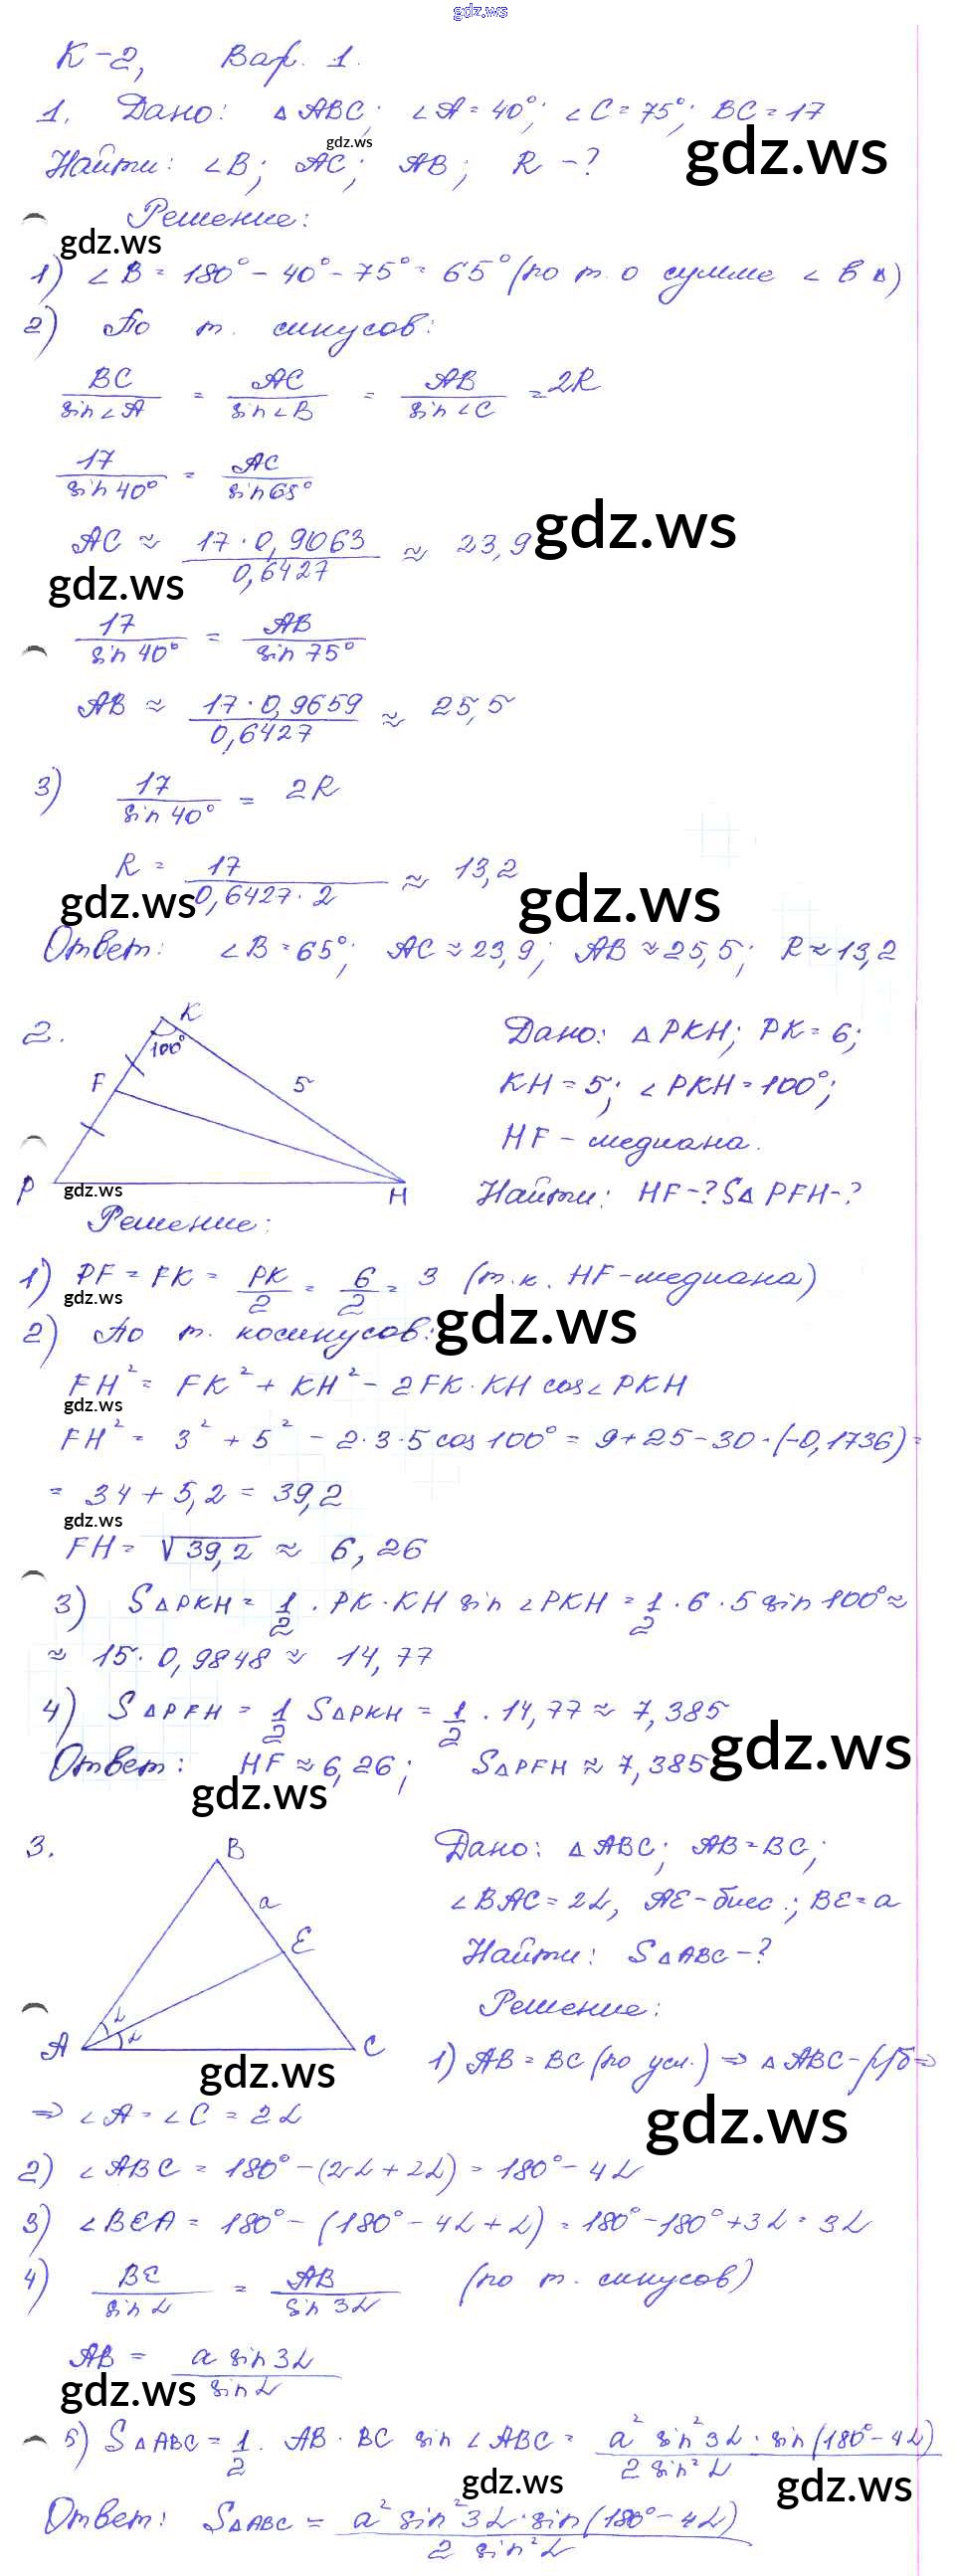 gdz.ws
К-2, Вар. 1.
1. Дано: △ABC; ∠A = 40°; ∠C = 75°; BC = 17
gdz.ws
Найти: ∠B; AC; AB; R - ?
gdz.ws
Решение:
gdz.ws
1) ∠B = 180° - 40° - 75° = 65° (по т. о сумме ∠ в △)
2) По т. синусов:
BC/sin∠A = AC/sin∠B = AB/sin∠C = 2R
17/sin 40° = AC/sin 65°
AC ≈ 17·0,9063/0,6427 ≈ 23,9
gdz.ws
gdz.ws
17/sin 40° = AB/sin 75°
AB ≈ 17·0,9659/0,6427 ≈ 25,5
3) 17/sin 40° = 2R
R = 17/0,6427·2 ≈ 13,2
gdz.ws
gdz.ws
Ответ: ∠B = 65°; AC ≈ 23,9; AB ≈ 25,5; R ≈ 13,2
2.
K
100°
F
5
P
H
gdz.ws
Дано: △PKH; PK = 6;
KH = 5; ∠PKH = 100°;
HF - медиана.
Найти: HF - ? S△PFH - ?
Решение:
1) PF = FK = PK/2 = 6/2 = 3 (т.к. HF - медиана)
gdz.ws
2) По т. косинусов:
gdz.ws
FH² = FK² + KH² - 2FK·KH cos∠PKH
gdz.ws
FH² = 3² + 5² - 2·3·5 cos 100° = 9 + 25 - 30·(-0,1736) =
= 34 + 5,2 = 39,2
gdz.ws
FH = √39,2 ≈ 6,26
3) S△PKH = 1/2 · PK·KH sin∠PKH = 1/2 · 6·5 sin 100° ≈
≈ 15·0,9848 ≈ 14,77
4) S△PFH = 1/2 S△PKH = 1/2 · 14,77 ≈ 7,385
Ответ: HF ≈ 6,26; S△PFH ≈ 7,385
gdz.ws
gdz.ws
3.
B
a
E
α
α
A
C
gdz.ws
Дано: △ABC; AB = BC;
∠BAC = 2α, AE - бис.; BE = a
Найти: S△ABC - ?
Решение:
1) AB = BC (по усл.) ⇒ △ABC - р/б ⇒
gdz.ws
⇒ ∠A = ∠C = 2α
2) ∠ABC = 180° - (2α + 2α) = 180° - 4α
3) ∠BEA = 180° - (180° - 4α + α) = 180° - 180° + 3α = 3α
4) BE/sin α = AB/sin 3α (по т. синусов)
AB = a sin 3α/sin α
gdz.ws
5) S△ABC = 1/2 · AB·BC sin∠ABC = a² sin² 3α · sin(180° - 4α)/2 sin² α
gdz.ws
gdz.ws
Ответ: S△ABC = a² sin² 3α · sin(180° - 4α)/2 sin² α